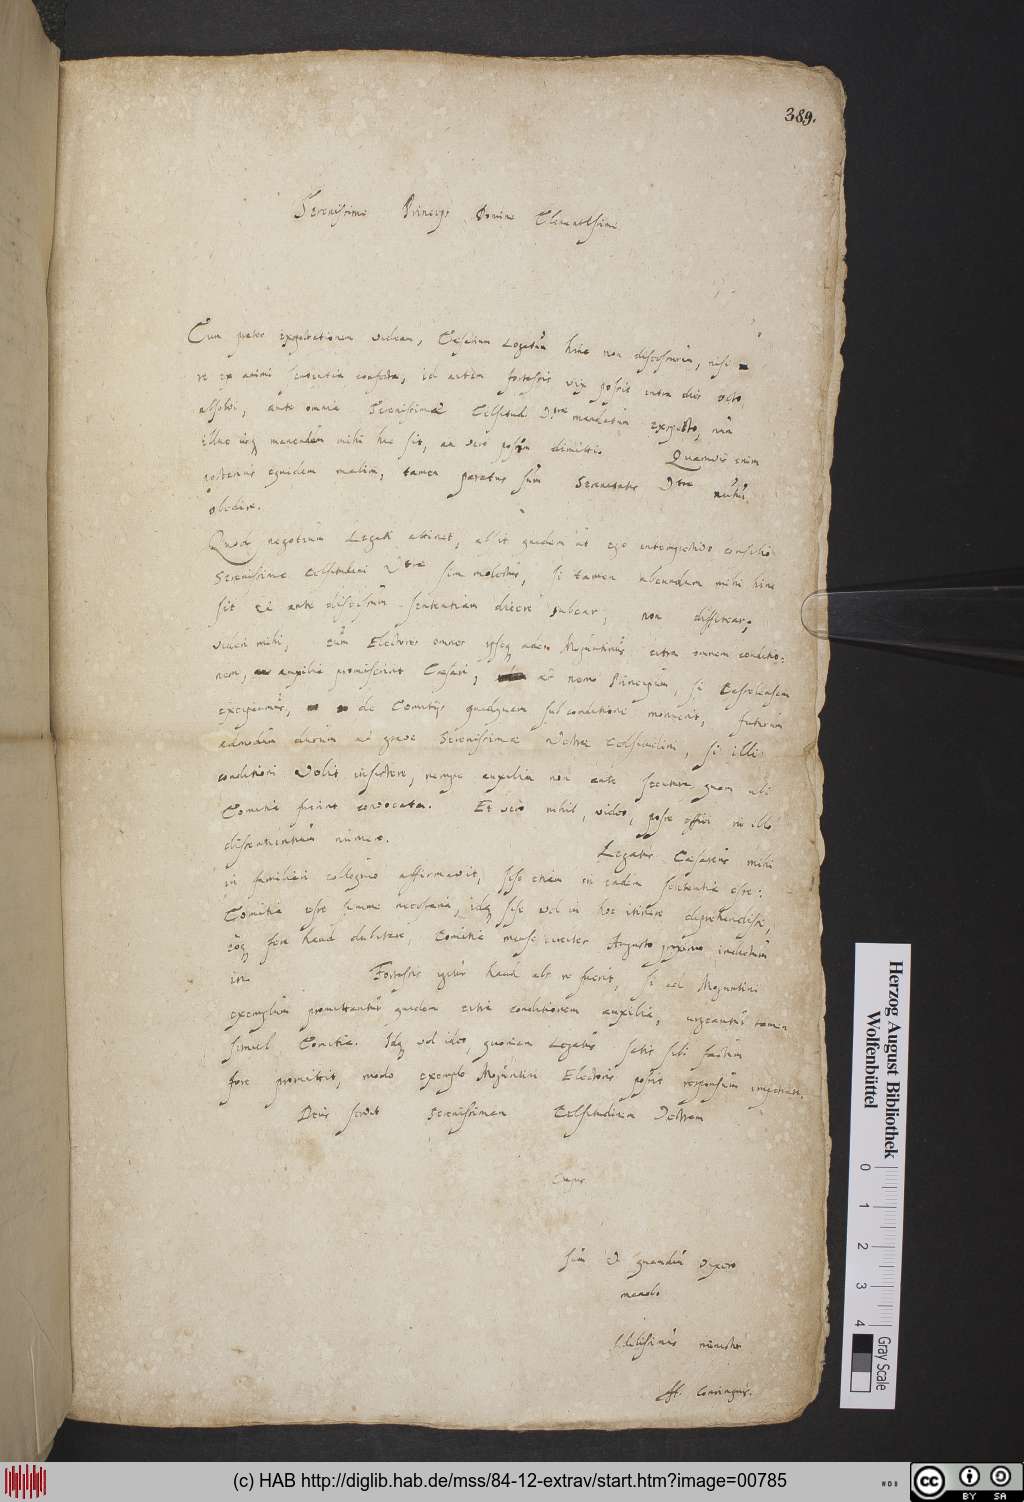 389.
Serenissime Princeps Domine Clementissime
Cum praeter exspectationem videam, Caesareum Legatum hinc non discessurum, nisi
re ex animi sententia confecta, id autem fortassis vix possit intra dies octo
absolvi, ante omnia Serenissimae Celsitud. Vtrae mandatum exspecto, num
illuc usq manendum mihi hic sit, an vero possim dimitti. Quamvis enim
posterius equidem malim, tamen paratus sum Serenitatis Vtrae
obedire.
Quod negotium Legati attinet, absit quidem ut ego intempestivo consilio
Serenissimae Celsitudini Vtrae sim molestus, si tamen abeundum mihi hinc
sit et ante discessum sententiam dicere jubear, non diffitear,
videri mihi, cum Electores omnes ipseq adeo Moguntinus citra omnem conditio:
nem, auxilia promiserint Caesari, ac nemo Principum, si
excipiamus, de Comitijs quidquam sub conditione monuerit, futurum
admodum durum ac grave Serenissimae Vestrae Celsitudini, si illi
conditioni velit insistere, nempe auxilia non ante secutura quam ubi
Comitia fuerint convocata. Et vero nihil, video, posse effici in illo
dissentientium numero. Legatus Caesareus mihi
in familiari colloquio affirmavit, sese etiam in eadem sententia esse:
Comitia esse summe necessaria, idq sese vel in hoc itinere deprehendisse,
eoq fore haud dubitare, Comitia mense circiter Augusto proximo indictum
iri. Fortassis igitur haud abs re fuerit, si ad Moguntini
exemplum promittantur quidem citra conditionem auxilia, urgeantur tamen
simul Comitia. Idq vel ideo, quoniam Legatus satis sibi factum
fore promittit, modo exemplo Moguntini Electoris possit responsum impetrare.
Deus servet Serenissimam Celsitudinem Vestram
Cujus
sum et quamdiu vixero
manebo
minister
H. Conringius.
Herzog August Bibliothek
Wolfenbüttel
0 1 2 3 4
Gray Scale
(c) HAB http://diglib.hab.de/mss/84-12-extrav/start.htm?image=00785
cc BY SA